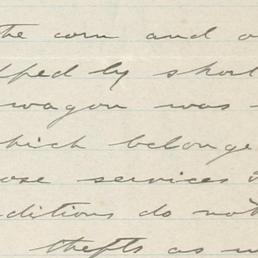 the corn and
by
wagon was
which belonge
ose services
ditions do not
thefts as w